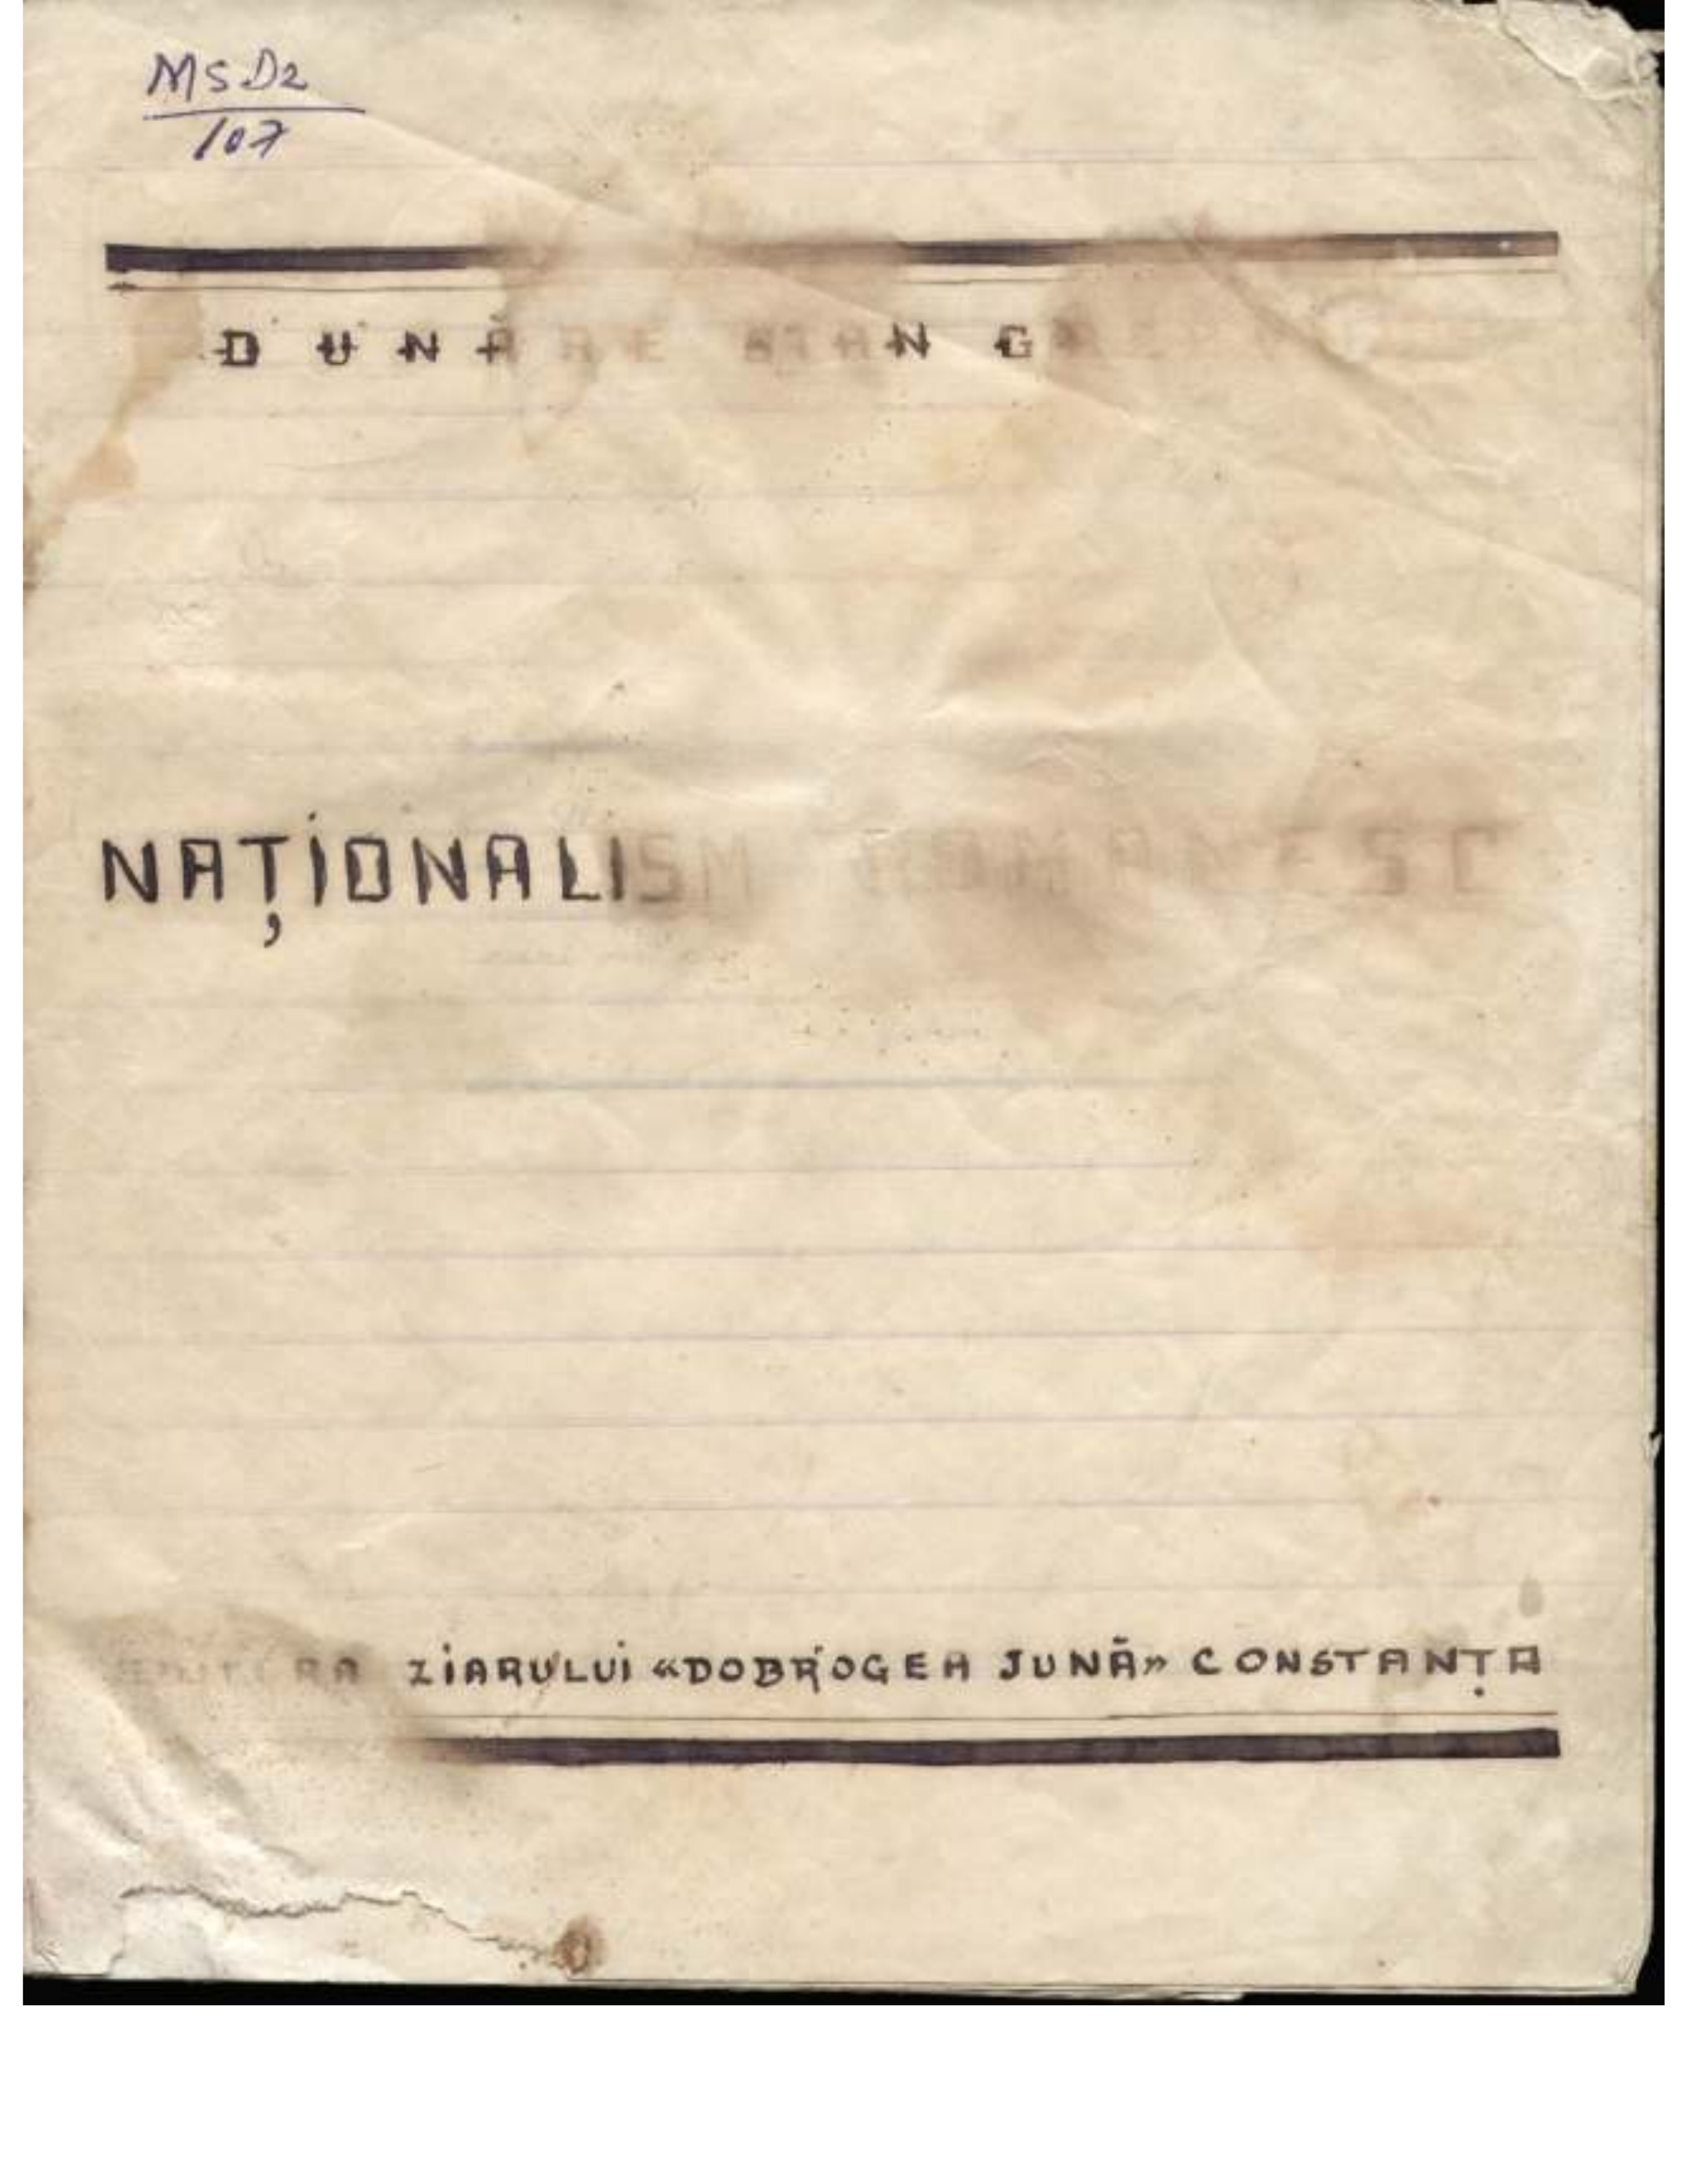 MSD2
107
DUNĂRE STAN
NAȚIONALISM ROMANESC
EDITURA ZIARULUI «DOBROGEA JUNĂ» CONSTANȚA